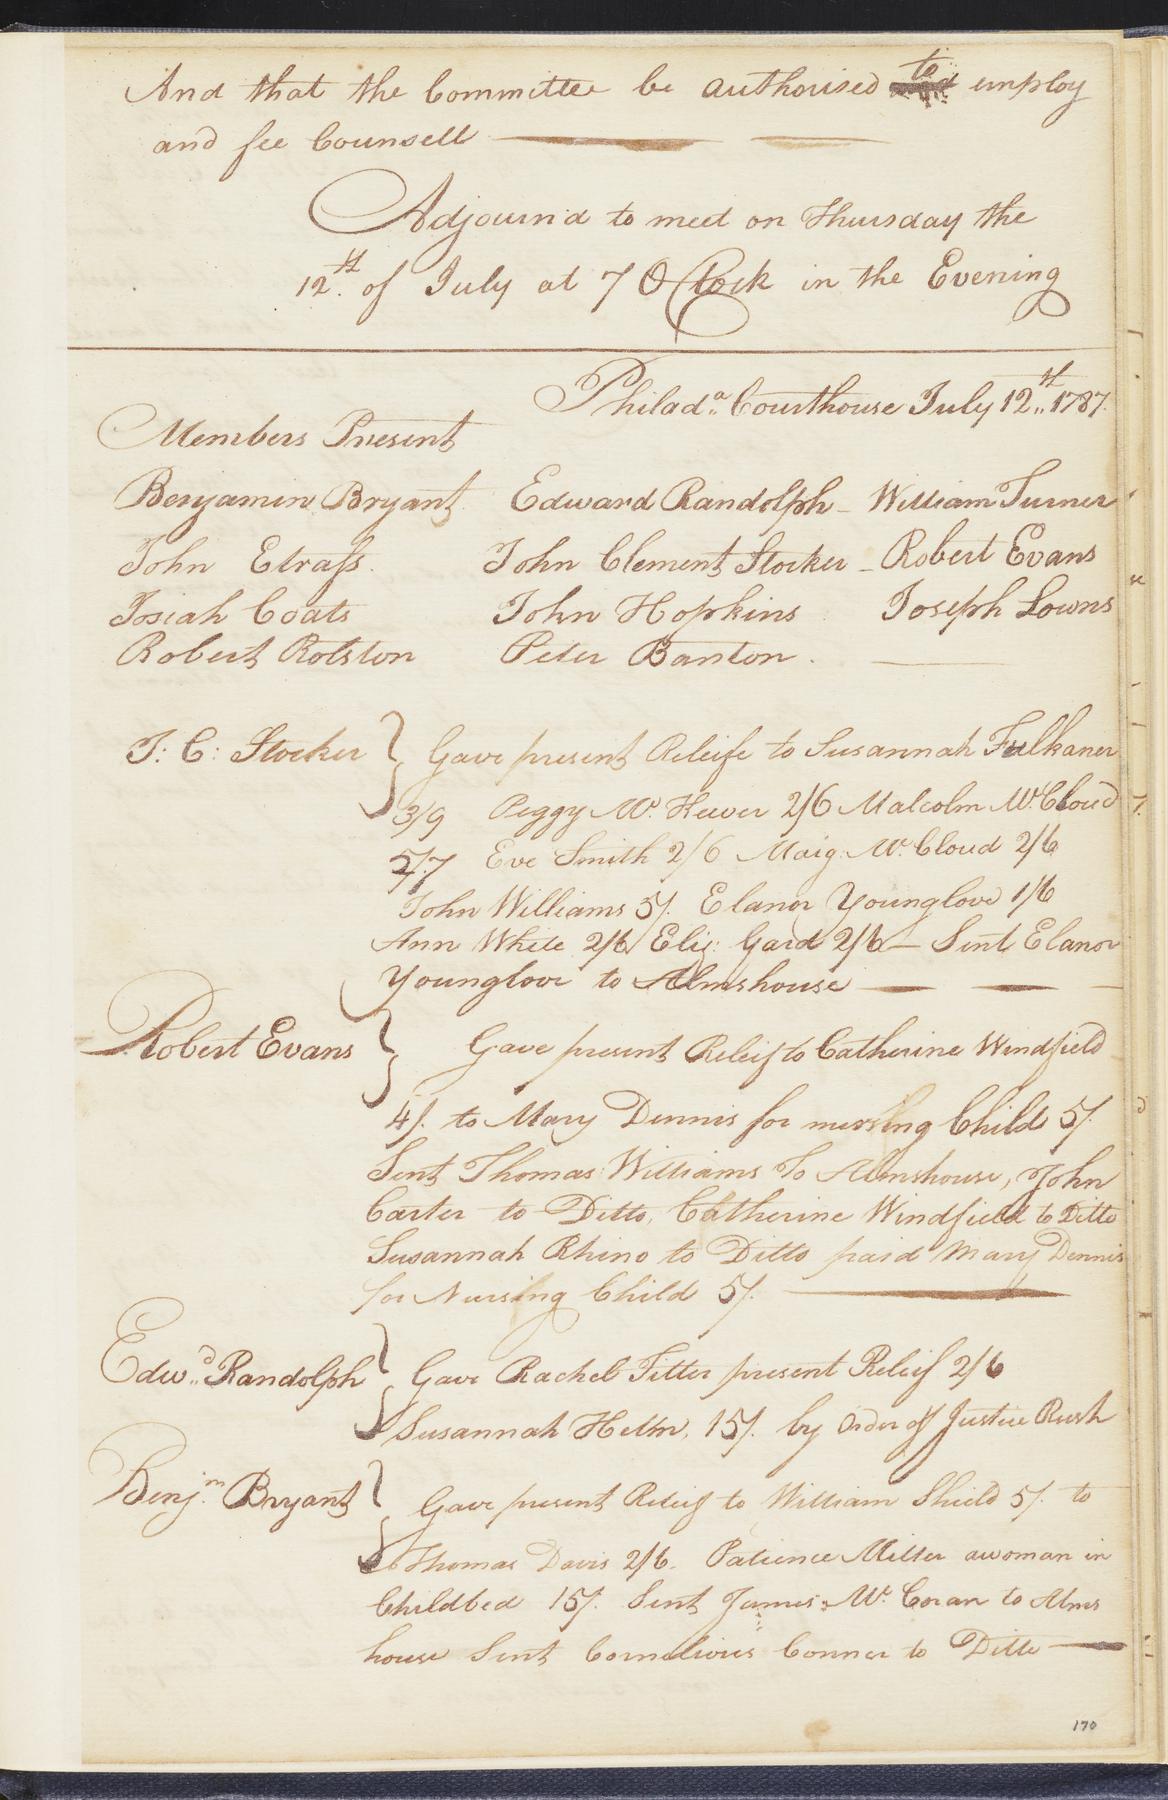 And that the Committee be authorised to employ
and fee Counsell
Adjourn'd to meet on Thursday the
12th. of July at 7 O Clock in the Evening
Philada. Courthouse July 12th. 1787.
Members Present
Benjamin Bryant Edward Randolph - William Turner
John Elrass. John Clement Stocker - Robert Evans
Josiah Coats John Hopkins Joseph Lowns
Robert Rolston Peter Banton.
J: C: Stocker } Gave present Releife to Susannah Fulkaner
3/9 Peggy Mc. Kever 2/6 Malcolm Mc. Cloud
5/7 Eve Smith 2/6 Marg. Mc. Cloud 2/6
John Williams 5/. Elanor Younglove 1/6
Ann White 2/6 Eliz: Gard 2/6 - Sent Elanor
Younglove to Almshouse
Robert Evans } Gave present Releif to Catherine Windfield
4/. to Mary Dennis for nursing Child 5/.
Sent Thomas Williams To Almshouse, John
Carter to Ditto, Catherine Windfield to Ditto
Susannah Rhino to Ditto paid Mary Dennis
for Nursing Child 5/.
Edwd. Randolph } Gave Rachel Titter present Releif 2/6
Susannah Helm, 15/. by Order of Justice Rush
Benjm. Bryant } Gave present Releif to William Shield 5/. to
Thomas Davis 2/6. Patience Miller a woman in
Childbed 15/. Sent James Mc. Coran to Alms
house Sent Cornelious Conner to Ditto
170